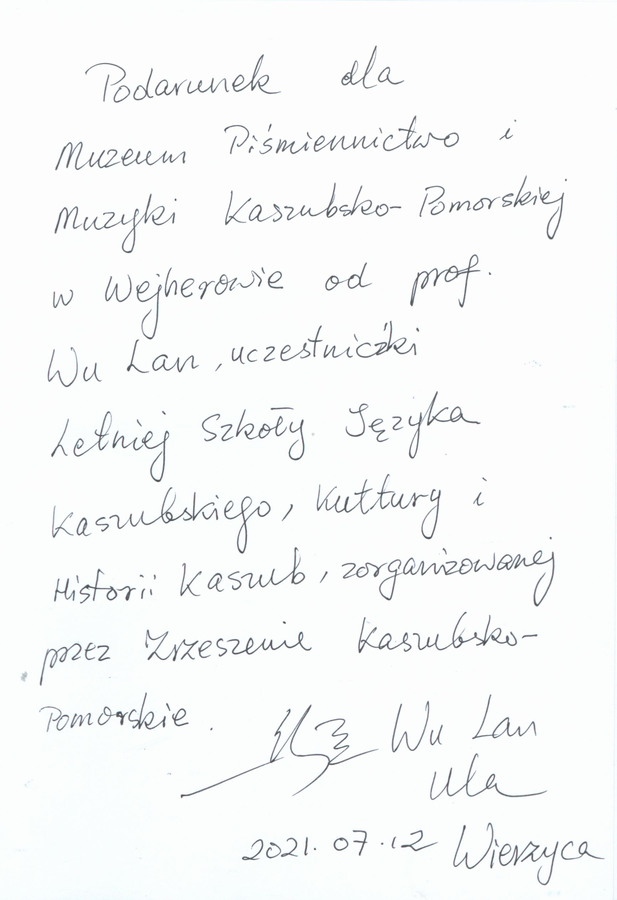 Podarunek dla
Muzeum Piśmiennictwo i
Muzyki Kaszubsko-Pomorskiej
w Wejherowie od prof.
Wu Lan, uczestniczki
Letniej Szkoły Języka
Kaszubskiego, Kuttury i
Historii Kaszub, zorganizowanej
przez Zrzeszenie Kaszubsko-
Pomorskie.
Wu Lan
Ula
2021.07.12 Wierzyca